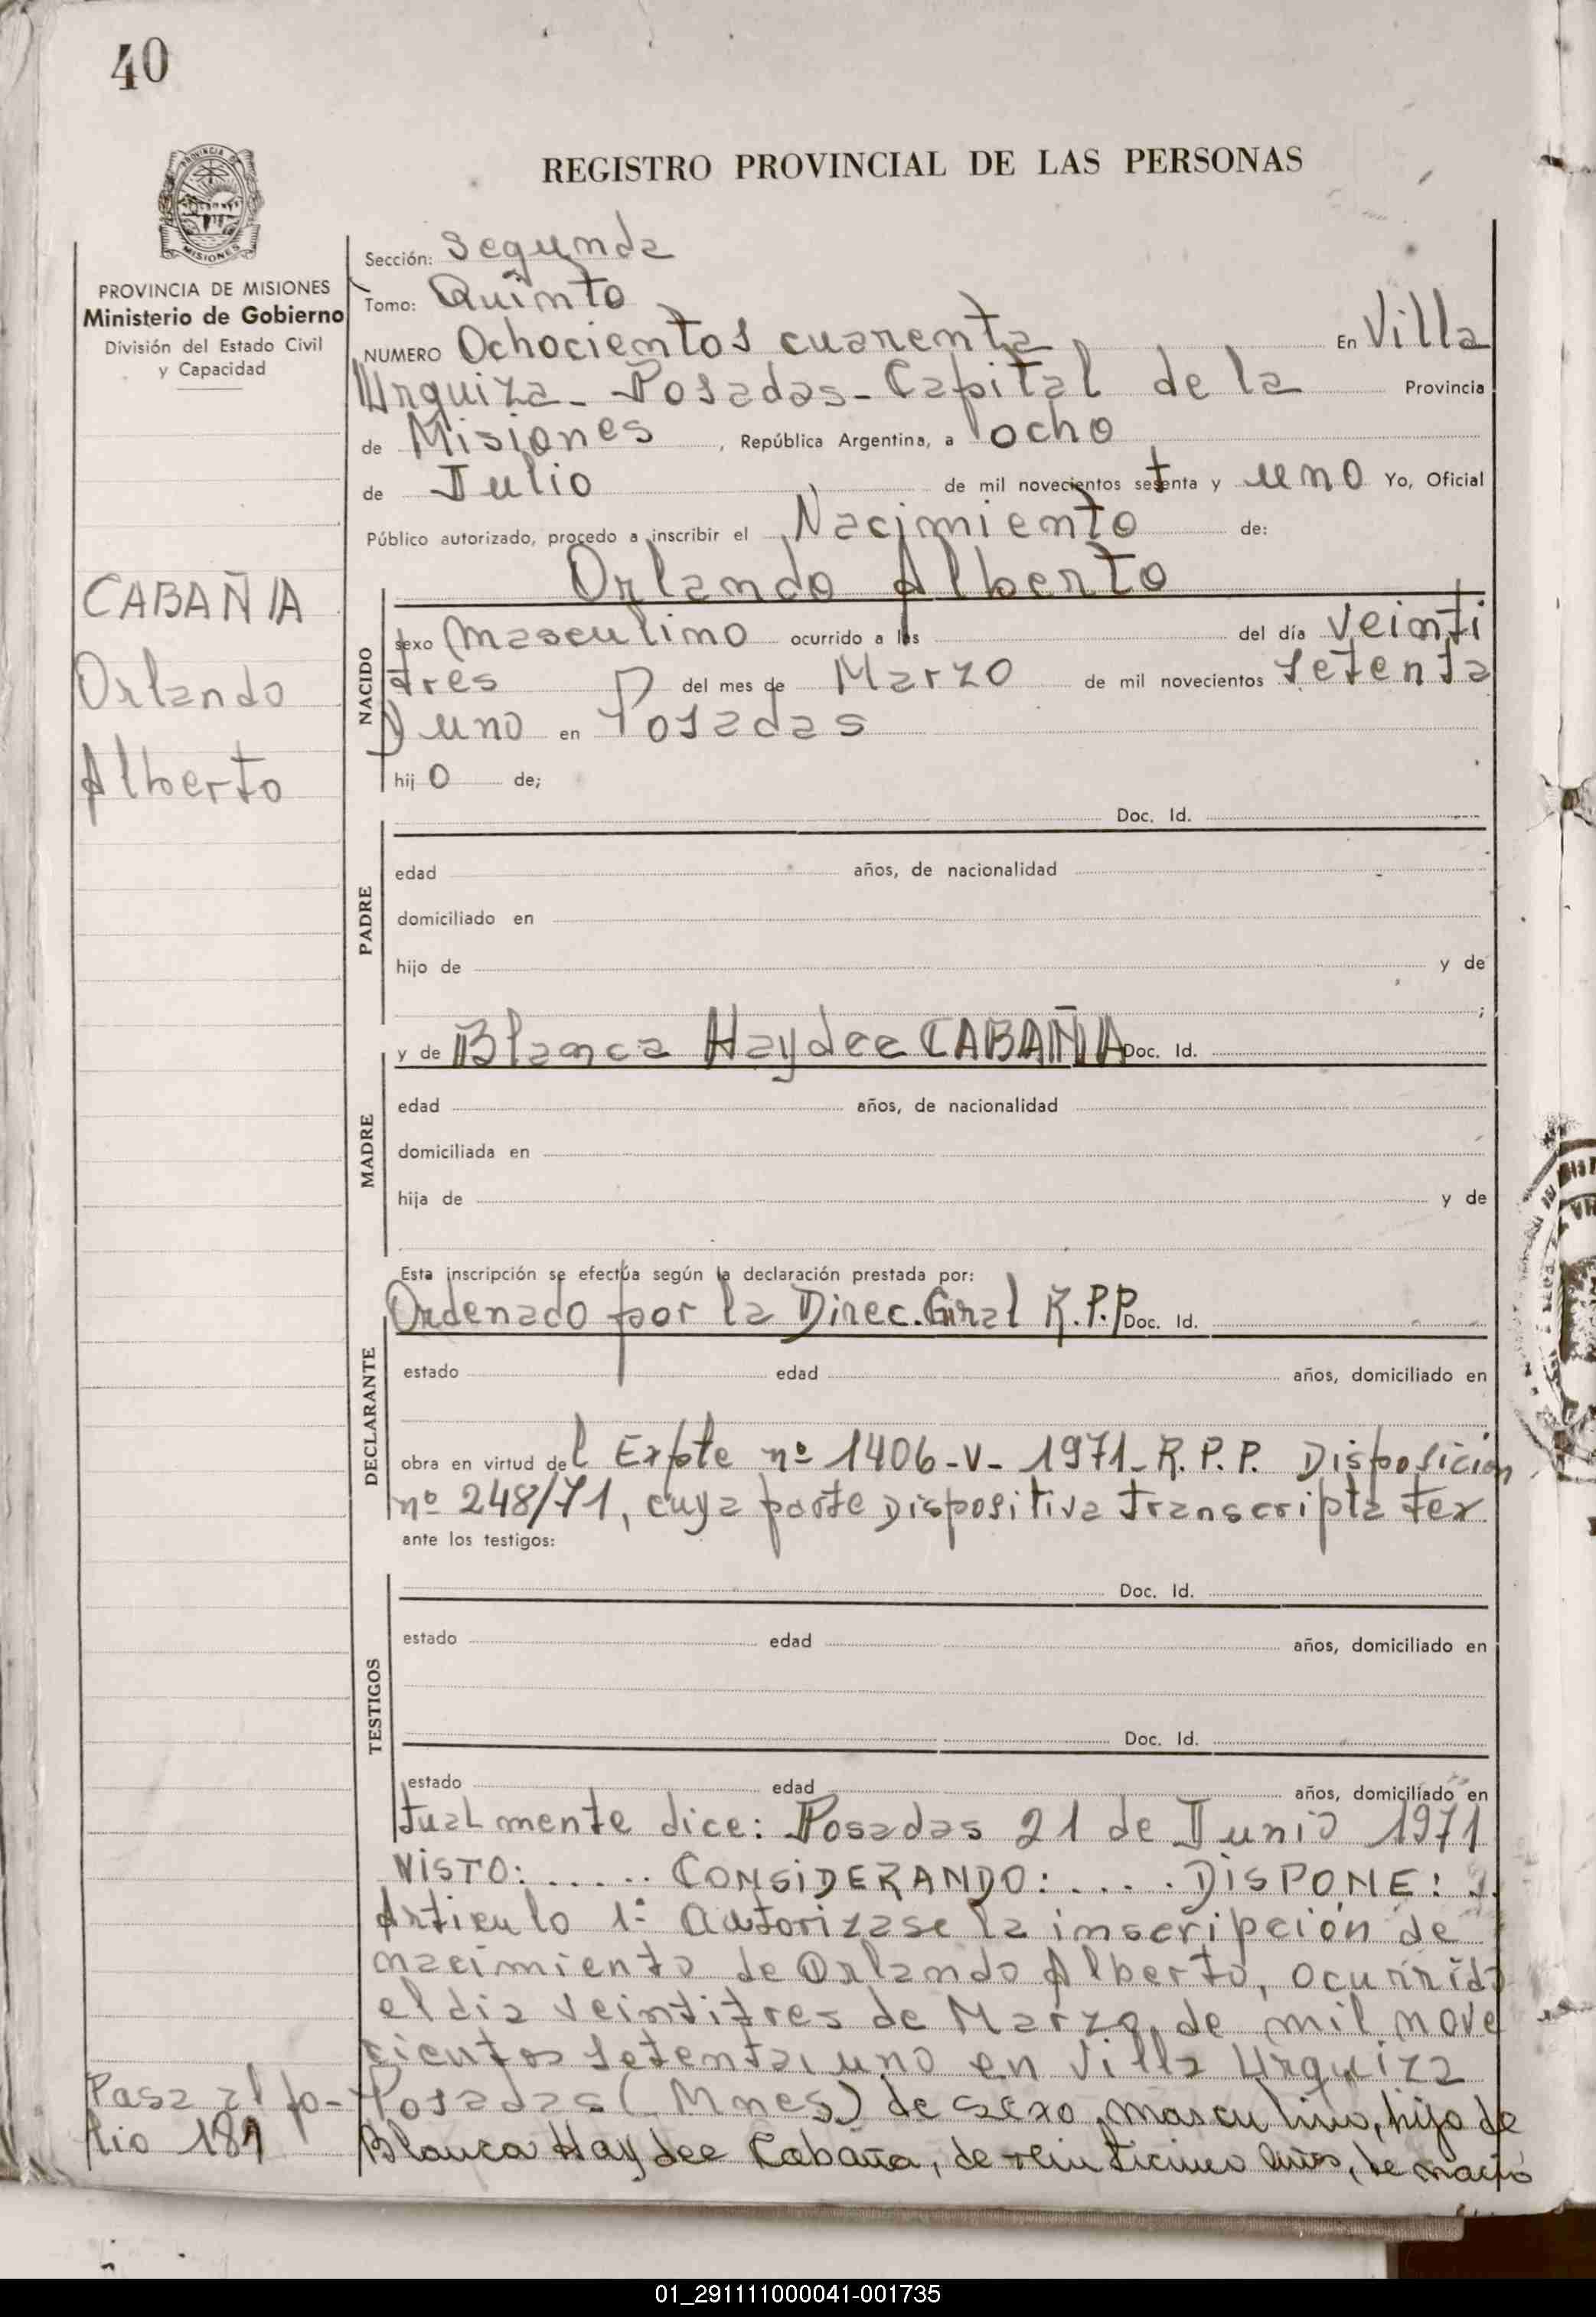 40
REGISTRO PROVINCIAL DE LAS PERSONAS
PROVINCIA DE
MISIONES
PROVINCIA DE MISIONES
Ministerio de Gobierno
División del Estado Civil
y Capacidad
Sección: Segunda
Tomo: Quinto
NUMERO Ochocientos cuarenta, En Villa
Urquiza - Posadas - Capital de la Provincia
de Misiones, República Argentina, a ocho
de Julio de mil novecientos setenta y uno Yo, Oficial
Público autorizado, procedo a inscribir el Nacimiento de:
Orlando Alberto
CABAÑA
Orlando
Alberto
NACIDO
sexo masculino ocurrido a las del día veinti
tres del mes de Marzo de mil novecientos setenta
y uno en Posadas
hijo de;
Doc. Id.
PADRE
edad años, de nacionalidad
domiciliado en
hijo de y de
;
MADRE
y de Blanca Haydee CABAÑA Doc. Id.
edad años, de nacionalidad
domiciliada en
hija de y de
DECLARANTE
Esta inscripción se efectúa según la declaración prestada por:
Ordenado por la Direc. Gnral R.P.P Doc. Id.
estado edad años, domiciliado en
obra en virtud del Expte nº 1406-V-1971-R.P.P. Disposición
nº 248/71, cuya parte Dispositiva transcripta tex
ante los testigos:
TESTIGOS
Doc. Id.
estado edad años, domiciliado en
Doc. Id.
estado edad años, domiciliado en
tualmente dice: Posadas 21 de Junio 1971
VISTO: ..... CONSIDERANDO: .... DISPONE:
Articulo 1º Autorizase la inscripción de
nacimiento de Orlando Alberto, ocurrido
el dia veintitres de Marzo de mil nove
cientos setenta, uno en Villa Urquiza
Posadas (Mnes) de sexo masculino, hijo de
Blanca Haydee Cabaña, de veinticinco años, de nacio
Pasa al fo-
lio 181
01_291111000041-001735